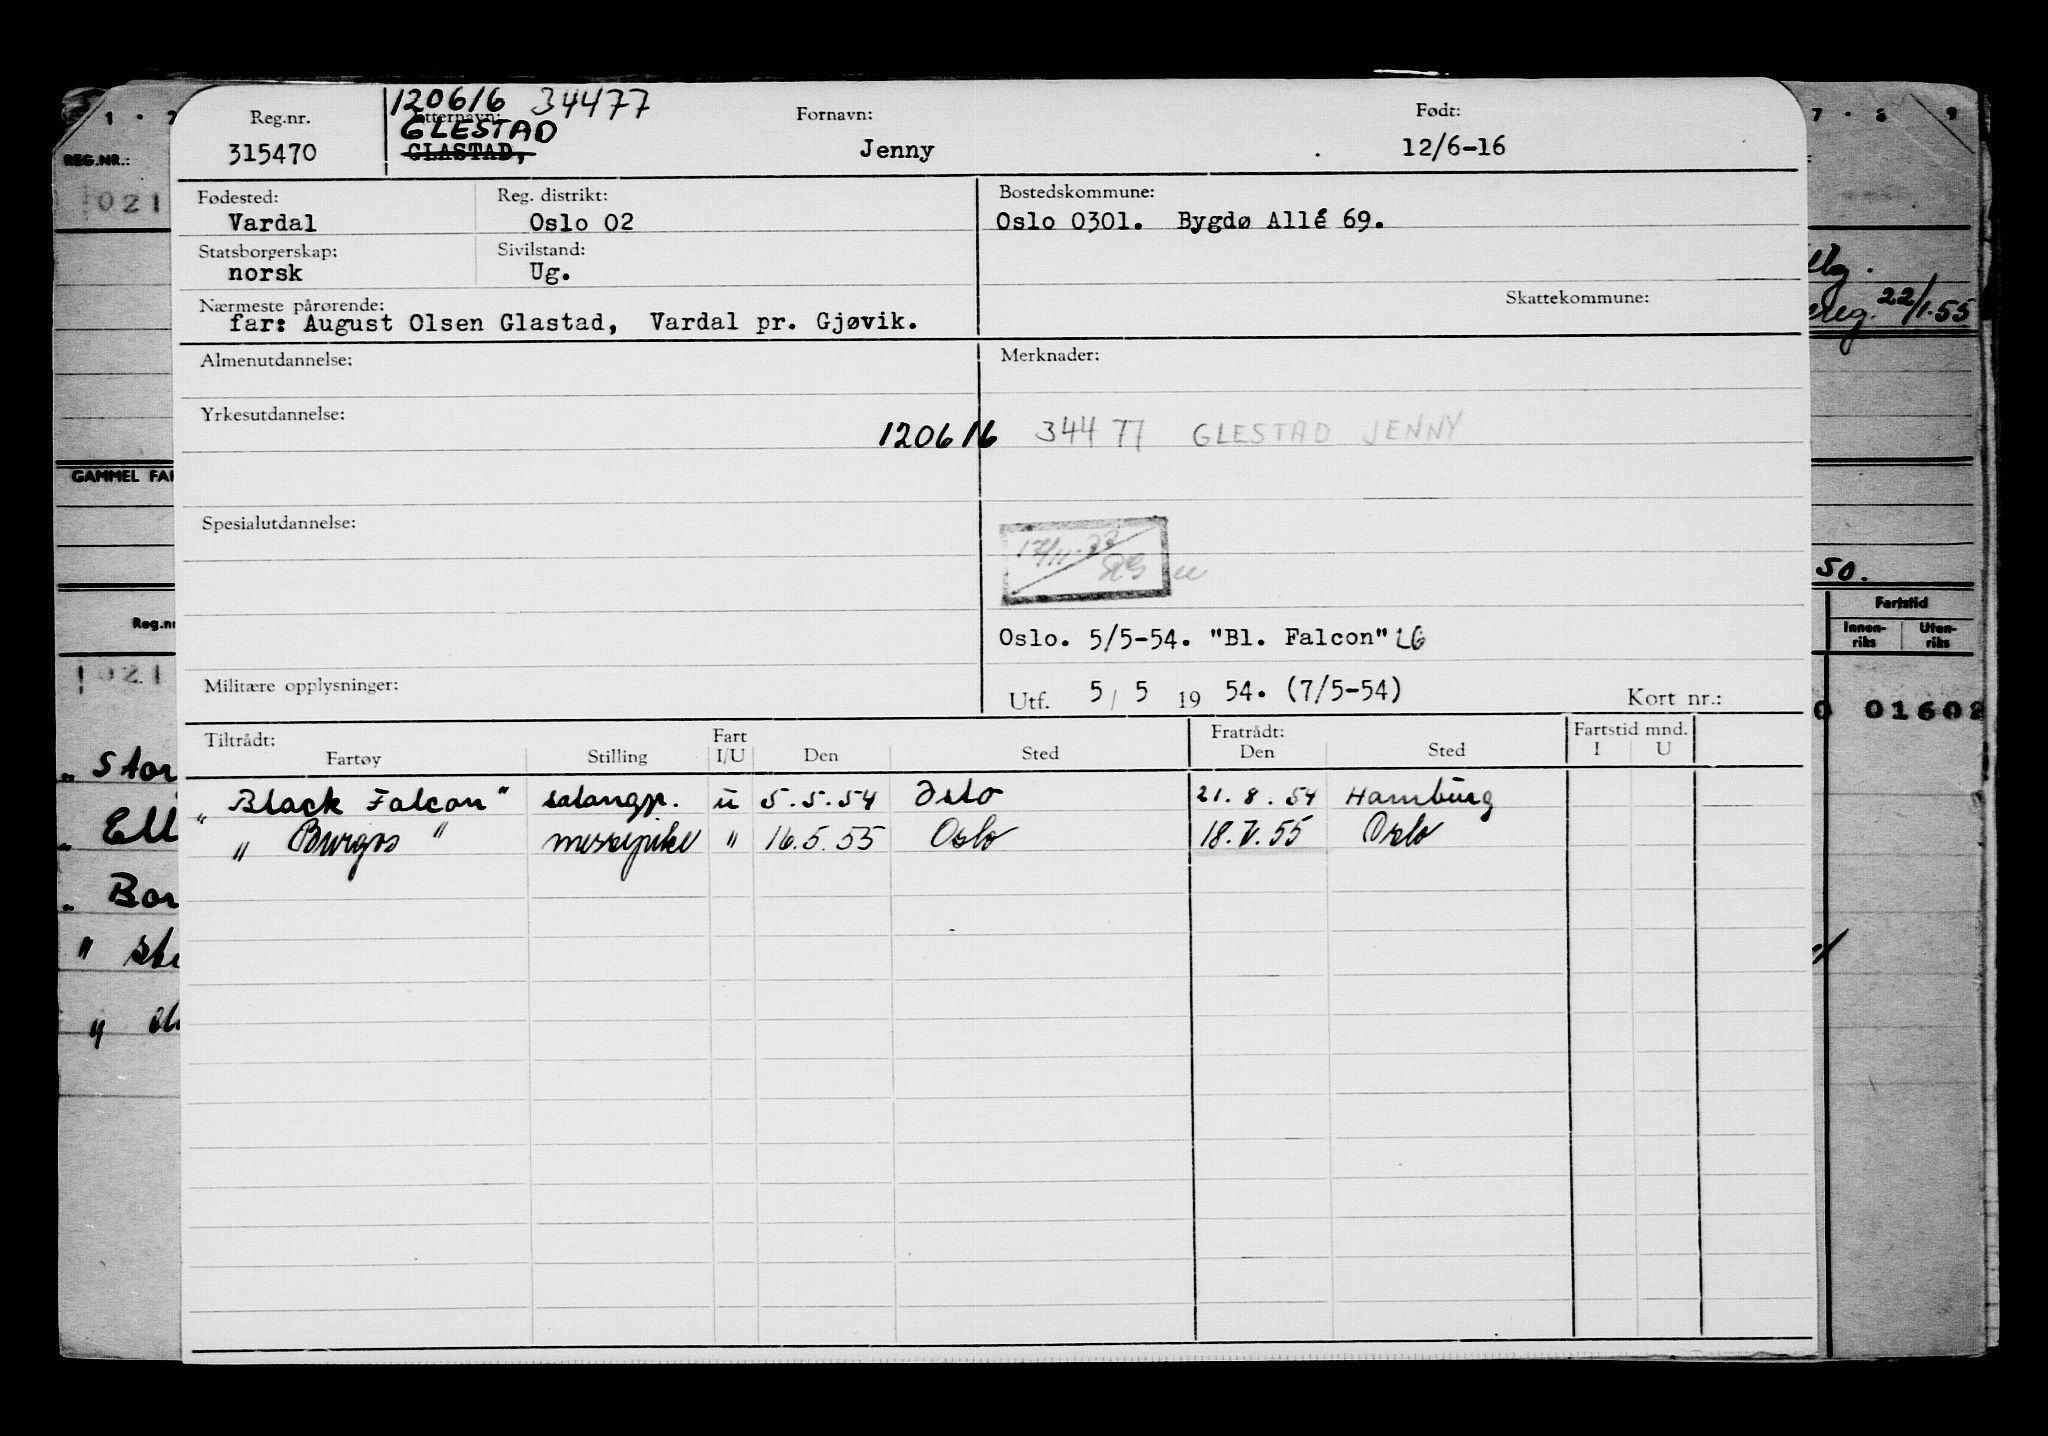 120616 34477
Reg.nr. Etternavn: Fornavn: Født:
GLESTAD
315470 GLASTAD, Jenny 12/6-16
Fødested: Reg. distrikt: Bostedskommune:
Vardal Oslo 02 Oslo 0301. Bygdø Allé 69.
Statsborgerskap: Sivilstand:
norsk Ug.
Nærmeste pårørende: Skattekommune:
far: August Olsen Glastad, Vardal pr. Gjøvik.
Almenutdannelse: Merknader:
Yrkesutdannelse:
120616 34477 GLESTAD JENNY
Spesialutdannelse:
Oslo. 5/5-54. "Bl. Falcon" LG
Militære opplysninger:
Utf. 5/5 1954. (7/5-54) Kort nr.:
Tiltrådt: Fart Fratrådt: Fartstid mnd.
Fartøy Stilling I/U Den Sted Den Sted I U
"Black Falcon" salongp. u 5.5.54 Oslo 21.8.54 Hamburg
"Burgos" messepike " 16.5.55 Oslo 18.V.55 Oslo
1 · 2
REG.NR.:
021
GAMMEL FAR
Reg.nr
021
" Stor
" Ell
" Bor
7 · 8 9
22/1.55
50.
Fartstid
Innen-riks Uten-riks
0 01602